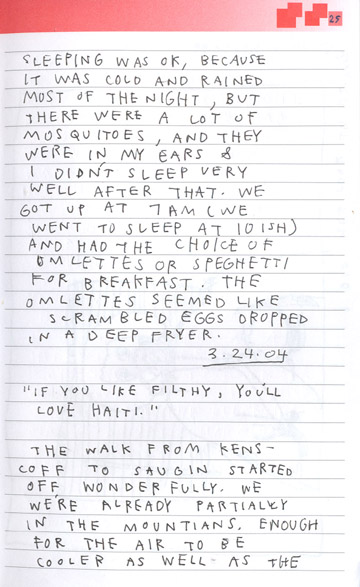 25
SLEEPING WAS OK, BECAUSE
IT WAS COLD AND RAINED
MOST OF THE NIGHT, BUT
THERE WERE A LOT OF
MOSQUITOES, AND THEY
WERE IN MY EARS &
I DIDN'T SLEEP VERY
WELL AFTER THAT. WE
GOT UP AT 7AM (WE
WENT TO SLEEP AT 10 ISH)
AND HAD THE CHOICE OF
OMLETTES OR SPEGHETTI
FOR BREAKFAST. THE
OMLETTES SEEMED LIKE
SCRAMBLED EGGS DROPPED
IN A DEEP FRYER.
3.24.04
"IF YOU LIKE FILTHY, YOU'LL
LOVE HAITI."
THE WALK FROM KENS-
COFF TO SAUGIN STARTED
OFF WONDERFULLY. WE
WERE ALREADY PARTIALLY
IN THE MOUNTIANS, ENOUGH
FOR THE AIR TO BE
COOLER AS WELL AS THE